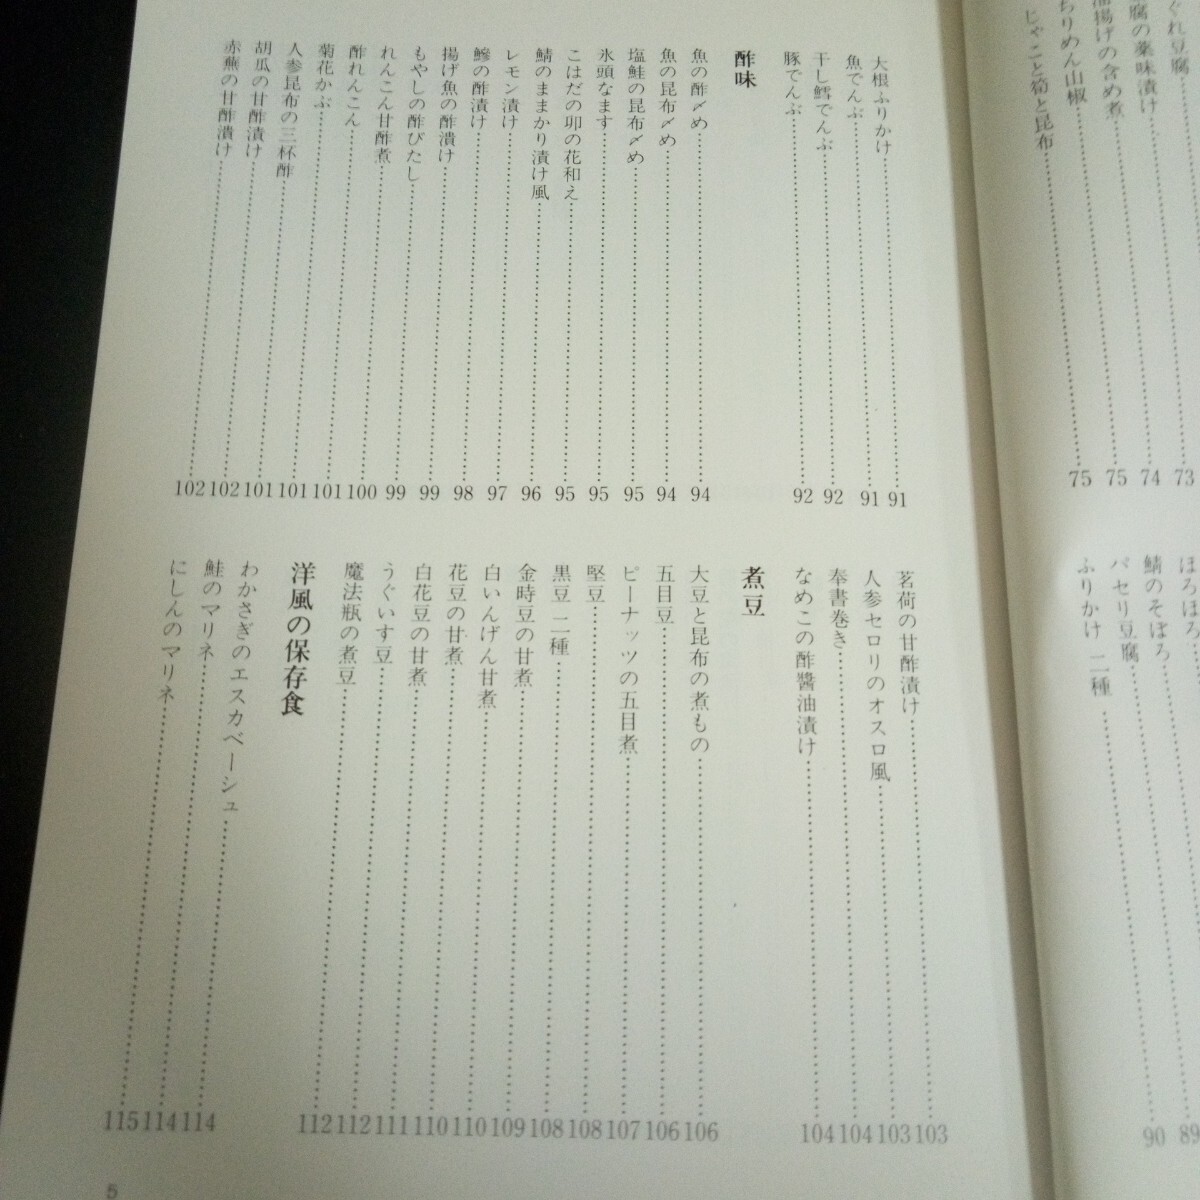 ぐれ豆腐
腐の薬味漬け……73
油揚げの含め煮……74
ちりめん山椒……75
じゃこと筍と昆布……75
ほろほろ
鯖のそぼろ
パセリ豆腐……89
ふりかけ 二種……90
大根ふりかけ……91
魚でんぶ……91
干し鱈でんぶ……92
豚でんぶ……92
酢味
魚の酢〆め……94
魚の昆布〆め……94
塩鮭の昆布〆め……95
氷頭なます……95
こはだの卯の花和え……95
鯖のままかり漬け風……96
レモン漬け……97
鰺の酢漬け……98
揚げ魚の酢漬け……99
もやしの酢びたし……99
れんこん甘酢煮……100
酢れんこん……101
菊花かぶ……101
人参昆布の三杯酢……101
胡瓜の甘酢漬け……102
赤蕪の甘酢漬け……102
茗荷の甘酢漬け……103
人参セロリのオスロ風……103
奉書巻き……104
なめこの酢醬油漬け……104
煮豆
大豆と昆布の煮もの……106
五目豆……106
ピーナッツの五目煮……107
堅豆……108
黒豆 二種……108
金時豆の甘煮……109
白いんげん甘煮……110
花豆の甘煮……110
白花豆の甘煮……111
うぐいす豆……112
魔法瓶の煮豆……112
洋風の保存食
わかさぎのエスカベーシュ……114
鮭のマリネ……114
にしんのマリネ……115
5